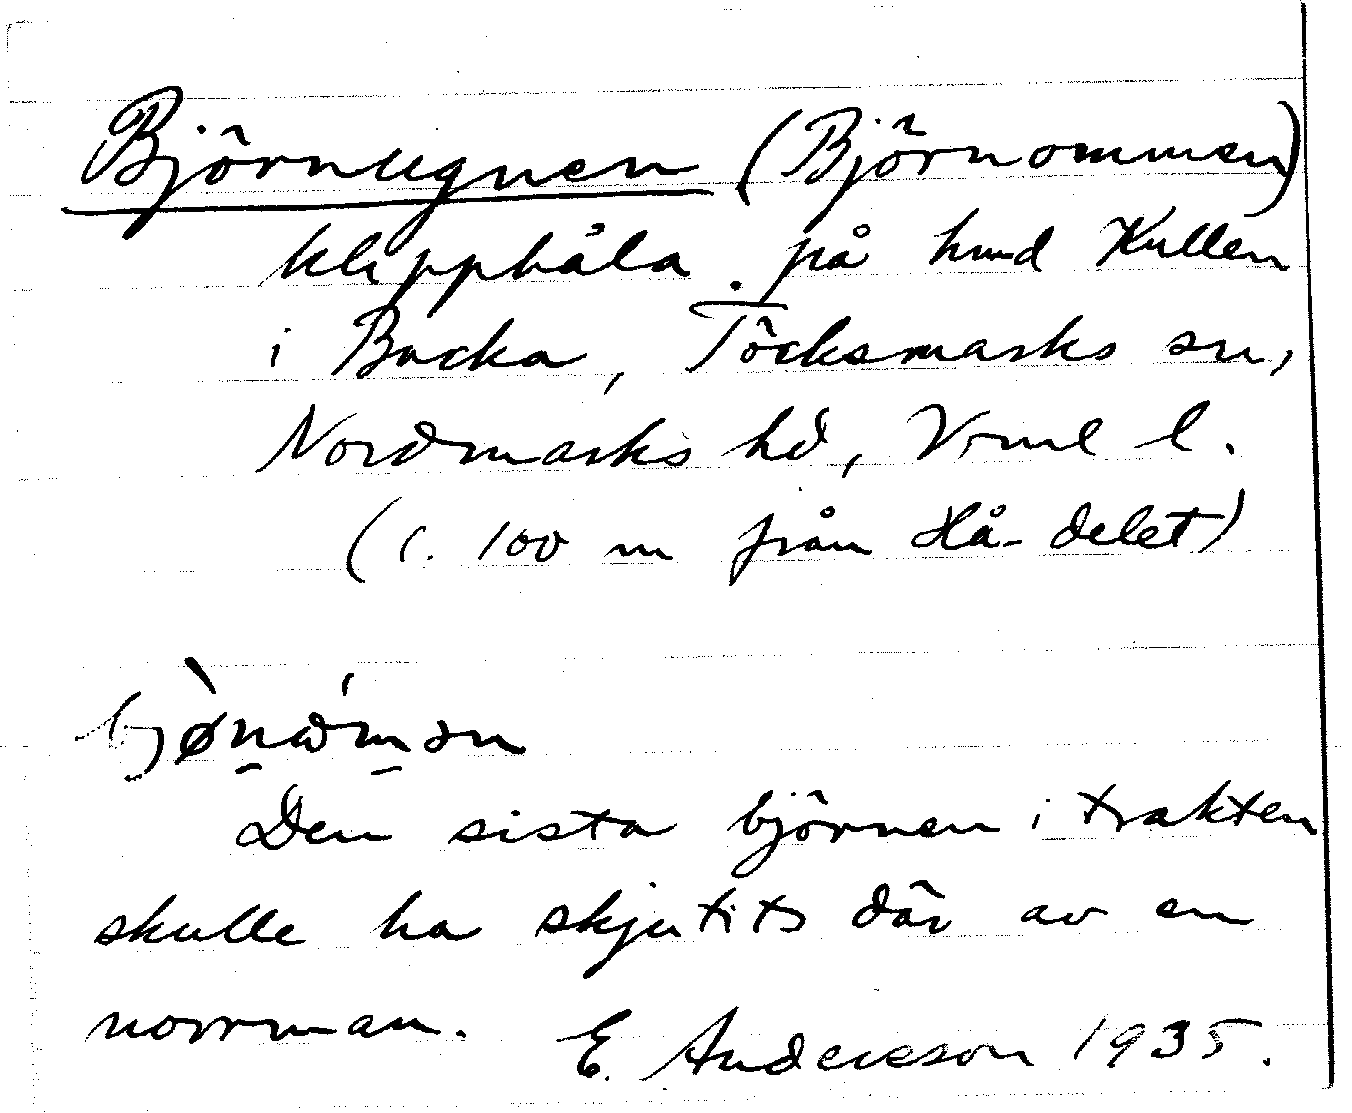 Björnugnen (Björnommen)
klipphåla på hmd Kullen
i Backa, Töcksmarks sn,
Nordmarks hd, Vrml l.
(c. 100 m från Hå-delet)
bjønòmən
Den sista björnen i trakten
skulle ha skjutits där av en
norrman.
E. Andersson 1935.